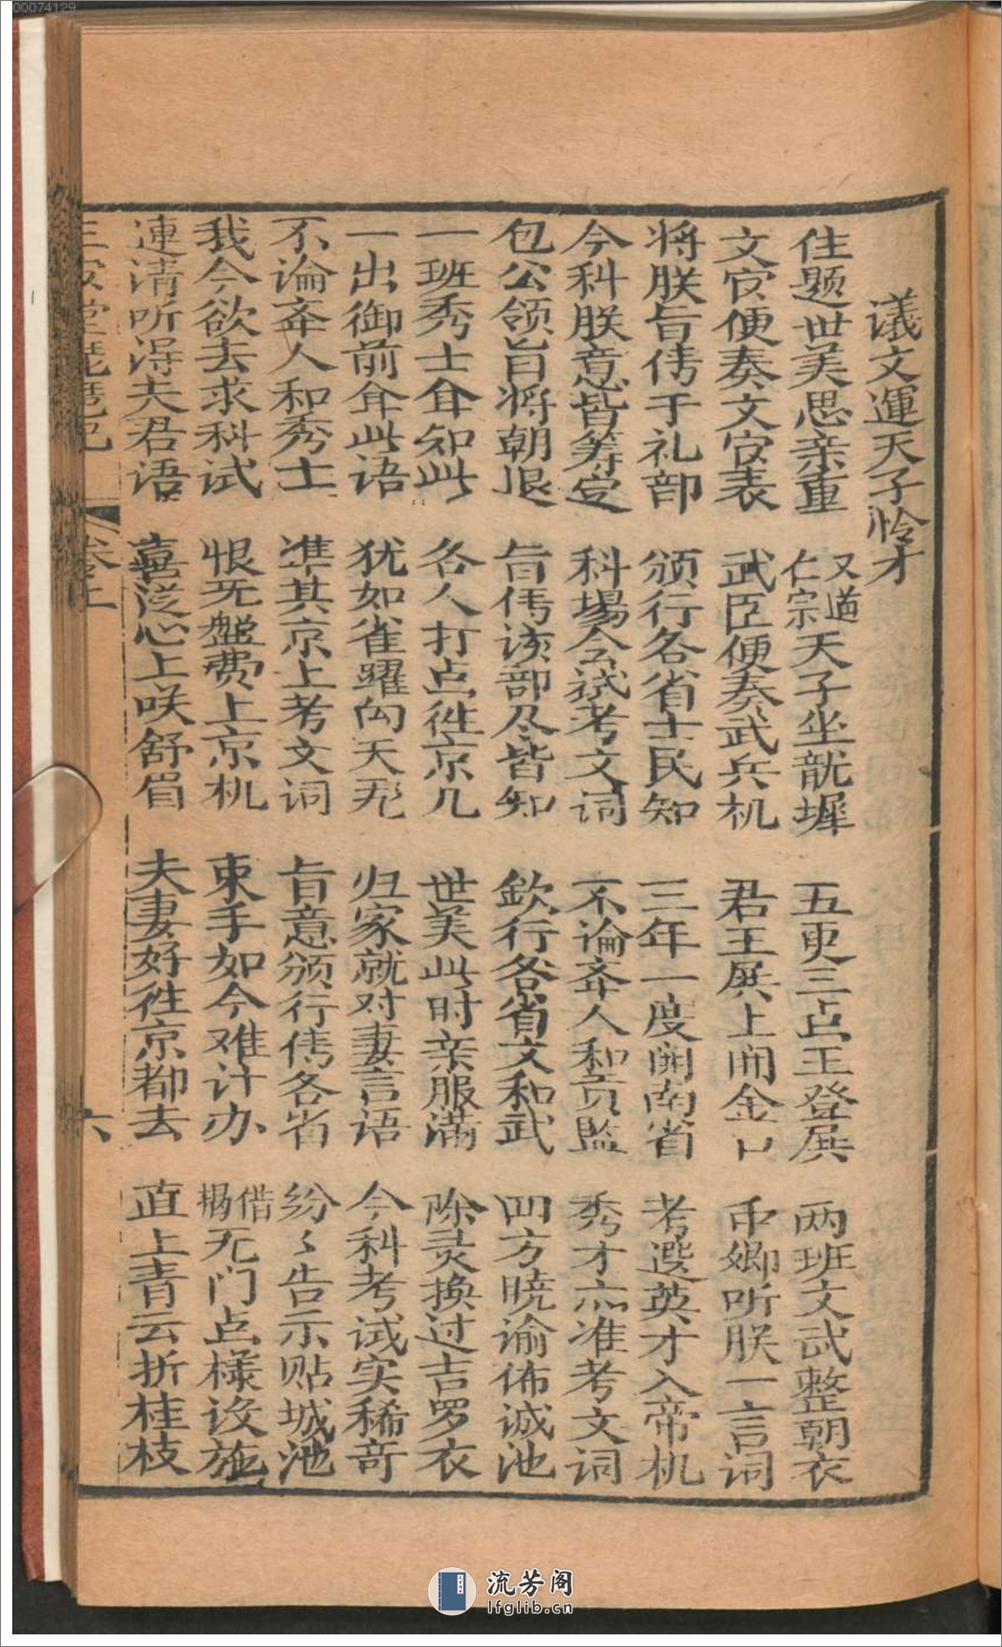 00074129
議文運天子怜才
住题世美思亲重 又道仁宗天子坐龍墀 五更三点王登殿 两班文武整朝衣
文官便奏文官表 武臣便奏武兵机 君王殿上開金口 卿听朕一言词
将朕旨传于礼部 颁行各省士民知 三年一度開南省 考選英才入帝机
今科朕意皆筹定 科場会試考文词 不論斉人和貢監 秀才亦准考文词
包公領旨将朝退 旨传该部尽皆知 欽行各省文和武 四方暁谕佈诚池
一班秀士耳知此 各人打点往京几 世美此时亲服满 除灵换过吉罗衣
一出御前耳此语 犹如雀躍向天飛 归家就对妻言语 今科考试实稀奇
不論斉人和秀士 准其京上考文词 旨意颁行传各省 纷〻告示贴城池
我今欲去求科试 恨无盤费上京机 束手如今难计办 借揭无门点樣设施
連清听得夫君语 喜泛心上咲舒眉 夫妻好往京都去 直上青云折桂枝
卷上 六
流芳阁
lfglib.cn